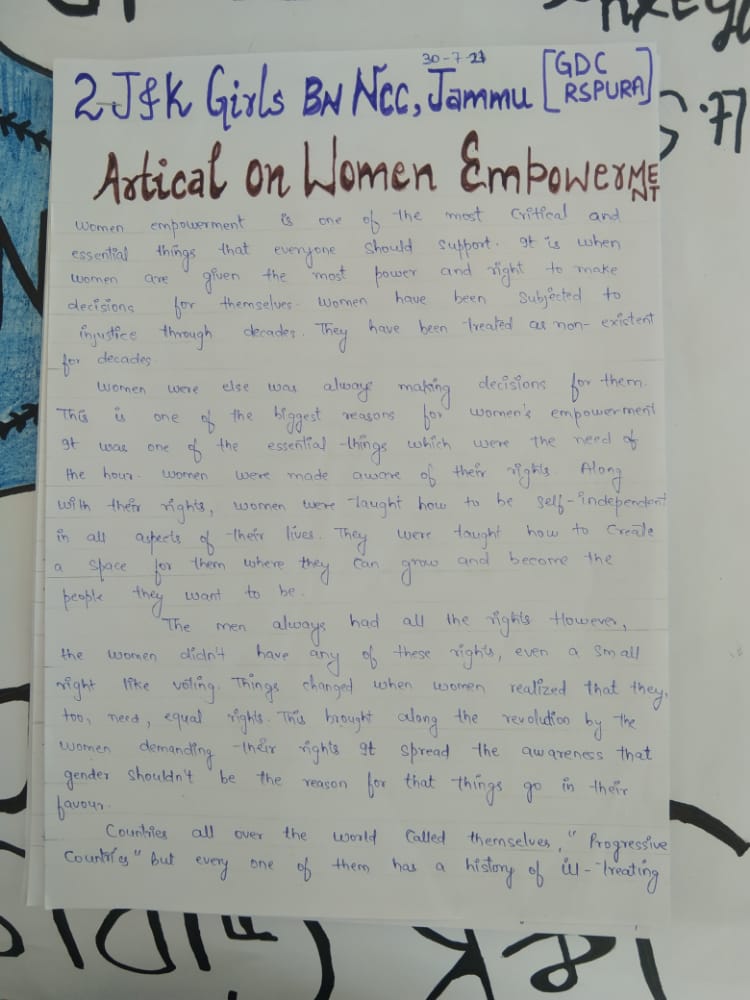 30-7-21
2 J&K Girls BN NCC, Jammu [GDC RSPURA]
Artical on Women EmpowerMENT
Women empowerment is one of the most critical and
essential things that everyone should support. It is when
women are given the most power and right to make
decisions for themselves. Women have been subjected to
injustice through decades. They have been treated as non-existent
for decades.
Women were else was always making decisions for them.
This is one of the biggest reasons for women's empowerment
It was one of the essential things which were the need of
the hour. Women were made aware of their rights. Along
with their rights, women were taught how to be self-independent
in all aspects of their lives. They were taught how to create
a space for them where they can grow and become the
people they want to be.
The men always had all the rights However,
the women didn't have any of these rights, even a small
right like voting. Things changed when women realized that they,
too, need, equal rights. This brought along the revolution by the
women demanding their rights It spread the awareness that
gender shouldn't be the reason for that things go in their
favour.
Countries all over the world called themselves, "Progressive
Countries" but every one of them has a history of ill-treating